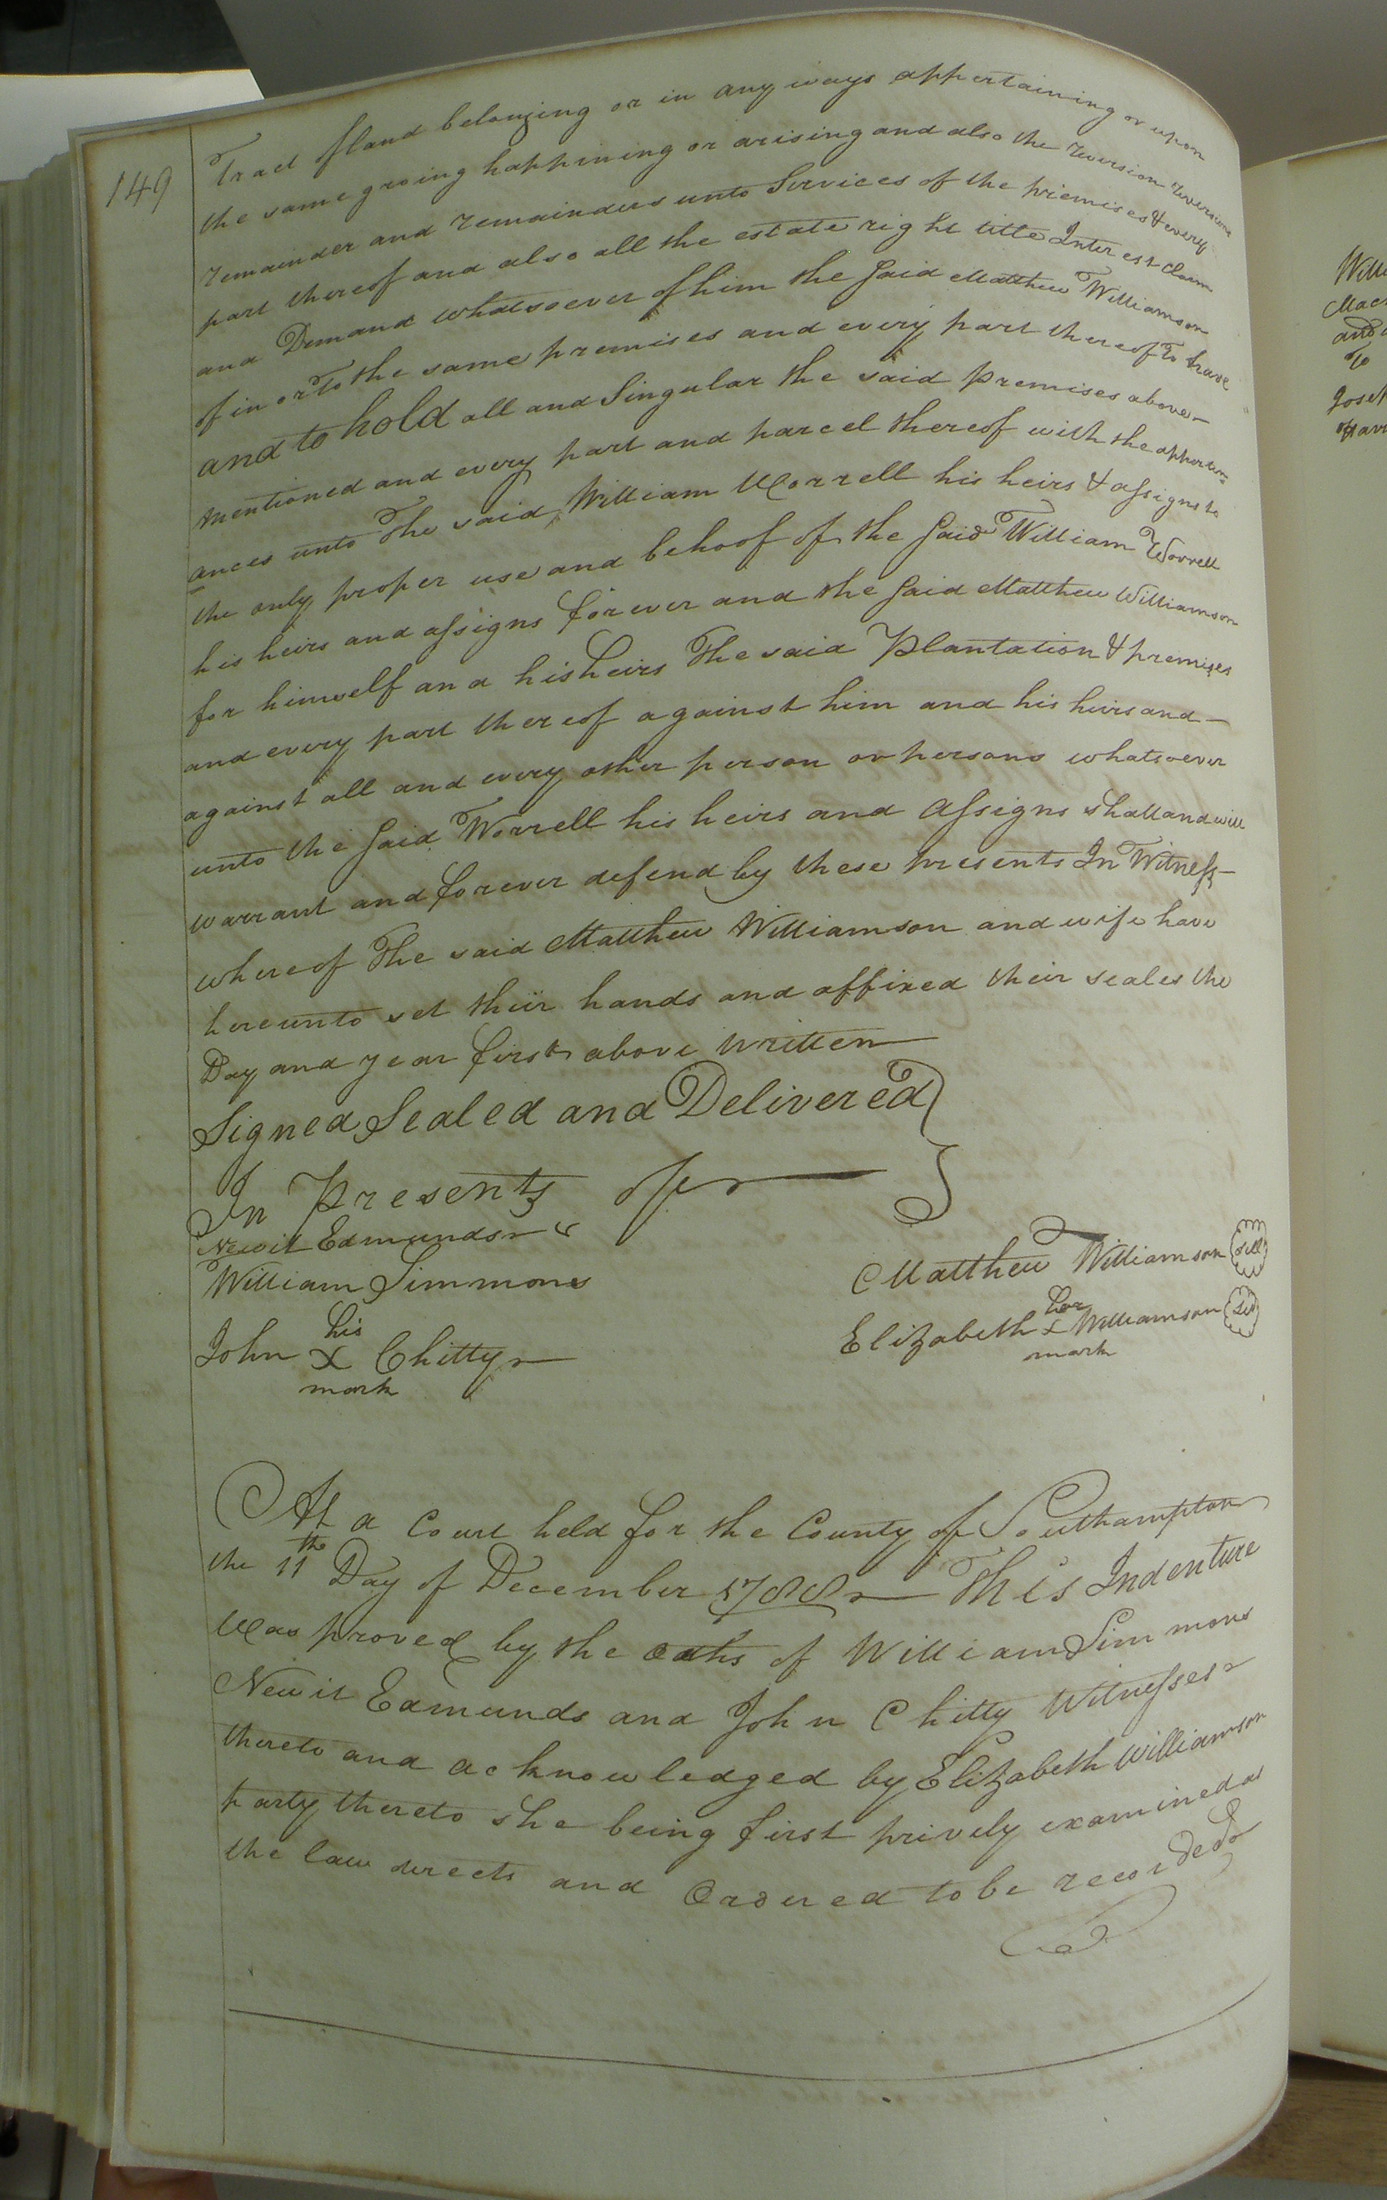 149
Tract of land belonging or in any ways appertaining or upon
the same growing happining or arising and also the reversion reversions
remainder and remainders unto Services of the premises & every
part thereof and also all the estate right title Interest claim
and Demand whatsoever of him the said Matthew Williamson
of in or To the same premises and every part thereof To have
and to hold all and Singular the said premises above
mentioned and every part and parcel thereof with the appurten=
ances unto The said William Worrell his heirs & assigns to
the only proper use and behoof of the said William Worrell
his heirs and assigns forever and the said Matthew Williamson
for himself and his heirs The said Plantation & premises
and every part thereof against him and his heirs and
against all and every other person or persons whatsoever
unto the said Worrell his heirs and assigns shall and will
warrant and forever defend by these presents In Witness
whereof The said Matthew Williamson and wife have
hereunto set their hands and affixed their seales the
Day and year first above written
Signed Sealed and Delivered
In Presents of
Newit Edmunds
William Simmons
John his X mark Chitty
Matthew Williamson Sell
Elizabeth her x mark Williamson
At a Court held for the County of Southampton
the 11th Day of December 1788 This Indenture
Was proved by the oaths of William Simmons
Newit Edmunds and John Chitty Witnesses
thereto and acknowledged by Elizabeth Williamson
party thereto she being first privily examined as
the law directs and Ordered to be recorded
Willi
and
To
Josep